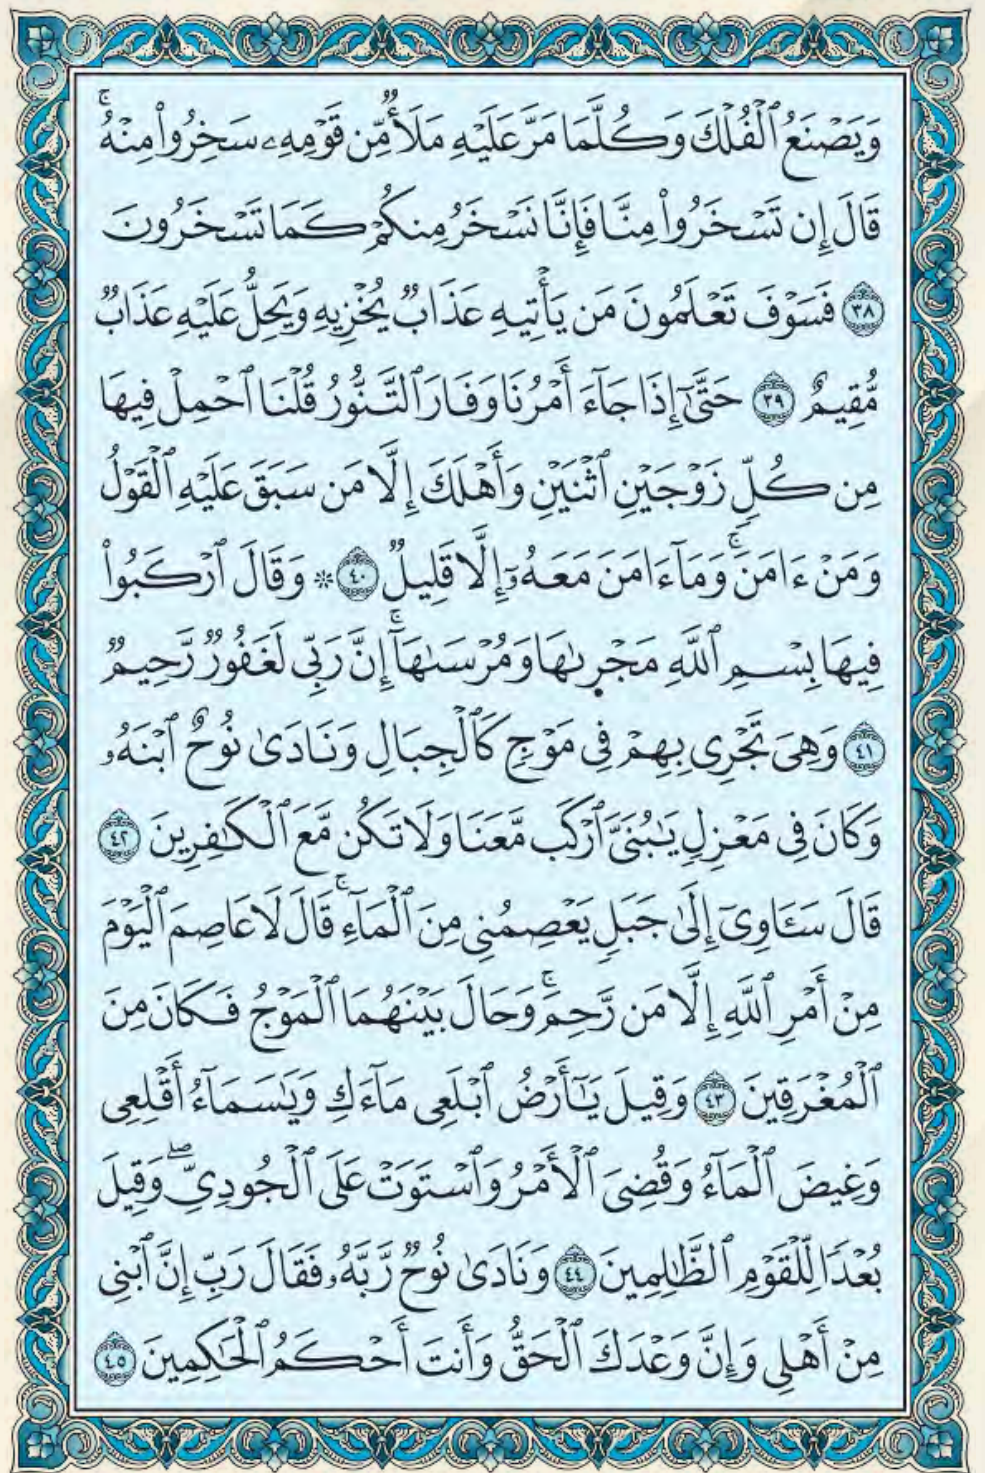 وَيَصْنَعُ ٱلْفُلْكَ وَكُلَّمَا مَرَّ عَلَيْهِ مَلَأٌ مِّن قَوْمِهِۦ سَخِرُوا۟ مِنْهُ ۚ
قَالَ إِن تَسْخَرُوا۟ مِنَّا فَإِنَّا نَسْخَرُ مِنكُمْ كَمَا تَسْخَرُونَ
٣٨ فَسَوْفَ تَعْلَمُونَ مَن يَأْتِيهِ عَذَابٌ يُخْزِيهِ وَيَحِلُّ عَلَيْهِ عَذَابٌ
مُّقِيمٌ ٣٩ حَتَّىٰٓ إِذَا جَآءَ أَمْرُنَا وَفَارَ ٱلتَّنُّورُ قُلْنَا ٱحْمِلْ فِيهَا
مِن كُلٍّ زَوْجَيْنِ ٱثْنَيْنِ وَأَهْلَكَ إِلَّا مَن سَبَقَ عَلَيْهِ ٱلْقَوْلُ
وَمَنْ ءَامَنَ ۚ وَمَآ ءَامَنَ مَعَهُۥٓ إِلَّا قَلِيلٌ ٤٠ ۞ وَقَالَ ٱرْكَبُوا۟
فِيهَا بِسْمِ ٱللَّهِ مَجْر۪ىٰهَا وَمُرْسَىٰهَآ ۚ إِنَّ رَبِّى لَغَفُورٌ رَّحِيمٌ
٤١ وَهِىَ تَجْرِى بِهِمْ فِى مَوْجٍ كَٱلْجِبَالِ وَنَادَىٰ نُوحٌ ٱبْنَهُۥ
وَكَانَ فِى مَعْزِلٍ يَٰبُنَىَّ ٱرْكَب مَّعَنَا وَلَا تَكُن مَّعَ ٱلْكَٰفِرِينَ ٤٢
قَالَ سَـَٔاوِىٓ إِلَىٰ جَبَلٍ يَعْصِمُنِى مِنَ ٱلْمَآءِ ۚ قَالَ لَا عَاصِمَ ٱلْيَوْمَ
مِنْ أَمْرِ ٱللَّهِ إِلَّا مَن رَّحِمَ ۚ وَحَالَ بَيْنَهُمَا ٱلْمَوْجُ فَكَانَ مِنَ
ٱلْمُغْرَقِينَ ٤٣ وَقِيلَ يَٰٓأَرْضُ ٱبْلَعِى مَآءَكِ وَيَٰسَمَآءُ أَقْلِعِى
وَغِيضَ ٱلْمَآءُ وَقُضِىَ ٱلْأَمْرُ وَٱسْتَوَتْ عَلَى ٱلْجُودِىِّ ۖ وَقِيلَ
بُعْدًا لِّلْقَوْمِ ٱلظَّٰلِمِينَ ٤٤ وَنَادَىٰ نُوحٌ رَّبَّهُۥ فَقَالَ رَبِّ إِنَّ ٱبْنِى
مِنْ أَهْلِى وَإِنَّ وَعْدَكَ ٱلْحَقُّ وَأَنتَ أَحْكَمُ ٱلْحَٰكِمِينَ ٤٥